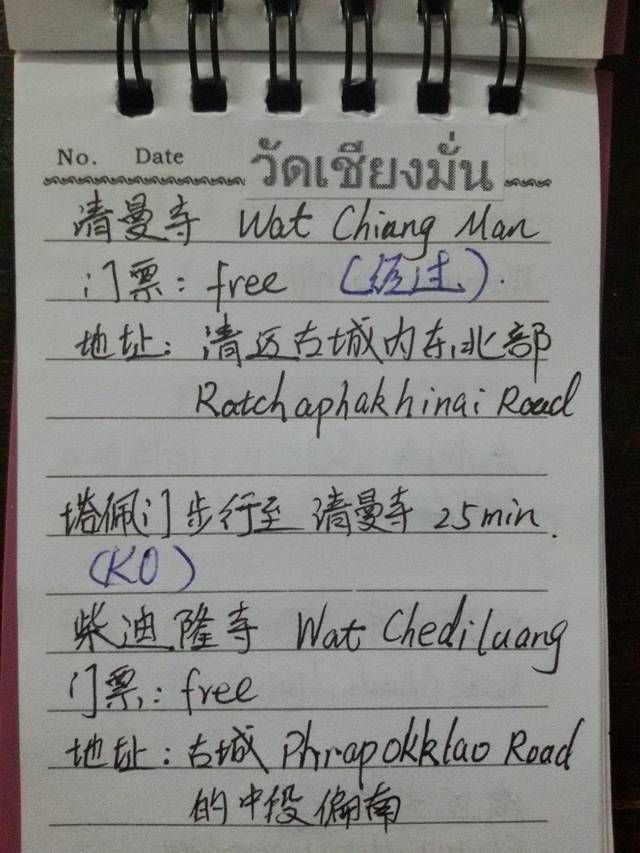 No. Date
วัดเชียงมั่น
清曼寺 Wat Chiang Man
门票: free (经过).
地址: 清迈古城内东北部
Ratchaphakhinai Road
塔佩门步行至 清曼寺 25min.
(KO)
柴迪隆寺 Wat Chediluang
门票: free
地址: 古城 Phrapokklao Road
的中段偏南